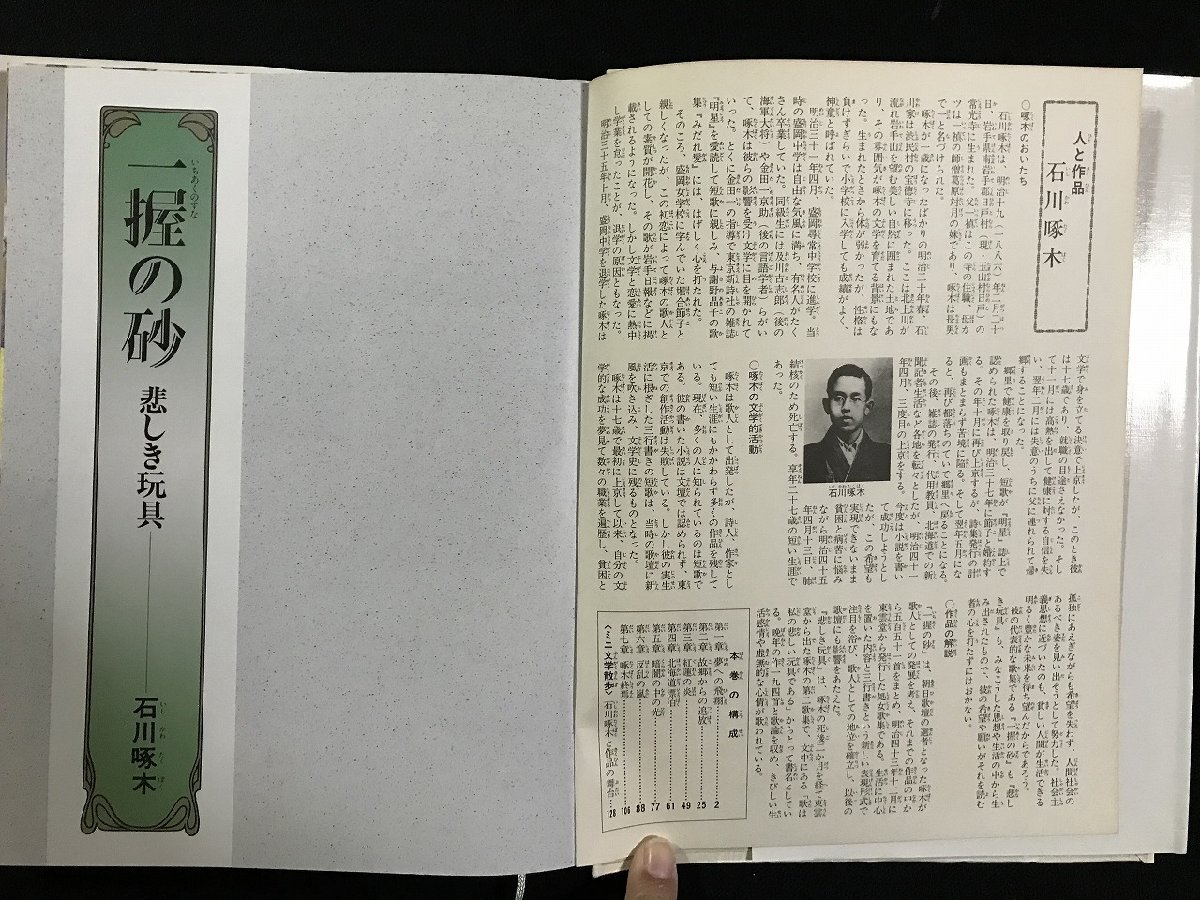 一握の砂
いちあくのすな
悲しき玩具
石川啄木
いしかわたくぼく
人と作品
石川啄木
○啄木のおいたち
石川啄木は、明治十九(一八八六)年二月二十
日、岩手県南岩手郡日戸村(現・玉山村日戸)の
常光寺に生まれた。父一禎はこの寺の住職、母カ
ツは一禎の師僧葛原対月の妹であり、啄木は長男
で一と名づけられた。
啄木が一歳になったばかりの明治二十年春、石
川家は渋民村の宝徳寺に移った。ここは北上川が
流れ岩手山を望む美しい自然に囲まれた土地であ
り、その雰囲気が啄木の文学を育てる背景にもな
った。生まれたときから体が弱かったが、性格は
負けずぎらいで小学校に入学しても成績がよく、
神童と呼ばれていた。
明治三十一年四月、盛岡尋常中学校に進学。当
時の盛岡中学は自由な気風に満ち、有名人がたく
さん卒業していた。同級生には及川古志郎(後の
海軍大将)や金田一京助(後の言語学者)らがい
て、啄木は彼らの影響を受け文学に目を開かれて
いった。とくに金田一の指導で東京新詩社の雑誌
『明星』を愛読して短歌に親しみ、与謝野晶子の歌
集『みだれ髪』には、はげしく心を打たれた。
そのころ、盛岡女学校に学んでいた堀合節子と
親しくなったが、この初恋によって啄木の歌人と
しての素質が開花し、その歌が岩手日報などに掲
載されるようになった。しかし文学と恋愛に熱中
し学業を怠ったことが、退学の原因ともなった。
明治三十五年十月、盛岡中学を退学した啄木は
文学で身を立てる決意で上京したが、このとき彼
は十七歳であり、就職の目途さえなかった。そし
て十一月には高熱を出して健康に対する自信を失
い、翌年二月には失意のうちに父に連れられて帰
郷することになった。
郷里で健康を取り戻し、短歌が『明星』誌上で
認められた啄木は、明治三十七年に節子と婚約す
る。その年十月に再び上京するが、詩集発行の計
画もまとまらず苦境に陥る。そして翌年五月にな
ると、再び都落ちのていで郷里へ戻ることになる。
その後、雑誌の発行、代用教員、北海道での新
聞記者生活など各地を転々としたが、明治四十一
年四月、三度目の上京をする。
今度は小説を書い
て成功しようとし
たが、この希望も
実現できないまま
貧困と病苦に悩み
ながら明治四十五
年四月十三日、肺
結核のため死亡する。享年二十七歳の短い生涯で
あった。
石川啄木
○啄木の文学的活動
啄木は歌人として出発したが、詩人、作家とし
ても短い生涯にもかかわらず多くの作品を残して
いる。現在、多くの人に知られているのは短歌で
ある。彼の書いた小説は文壇では認められず、東
京での創作活動は失敗している。しかし彼の実生
活に根ざした三行書きの短歌は、当時の歌壇に新
風を吹き込み、文学史に残るものとなった。
啄木は十七歳で最初に上京して以来、自分の文
学的な成功を夢見て数々の職業を遍歴し、貧困と
孤独にあえぎながらも希望を失わず、人間社会の
あるべき姿を見い出そうとして努力した。社会主
義思想に近づいたのも、貧しい人間が生活できる
明るく豊かな未来を待ち望んだからであろう。
彼の代表的な歌集である『一握の砂』も『悲し
き玩具』も、みなこうした思想や生活の中から生
み出されたもので、彼の希望や願いがそれを読む
者の心を打たずにはおかない。
○作品の解説
『一握の砂』は、朝日歌壇の選者となった啄木が
歌人としての発展を考え、それまでの作品のなか
ら五百五十一首をまとめ、明治四十三年十二月に
東雲堂から発行した処女歌集である。生活に中心
を置いた内容と三行書きという新しい表現形式で
注目を浴び、歌人としての地位を確立し、以後の
歌壇にも影響をあたえた。
『悲しき玩具』は、啄木の死後二か月を経て東雲
堂から出た啄木の第二歌集で、文中にある「歌は
私の悲しい玩具である」からとって書名としてい
る。晩年の作一九四首と歌論を収め、きびしい生
活感情や虚無的な心情が歌われている。
本巻の構成
第一章 夢への飛翔 2
第二章 故郷からの追放 25
第三章 紅蓮の炎 49
第四章 北海道漂泊 61
第五章 暗闇の中の光 77
第六章 反乱の嵐 88
第七章 啄木終焉 106
〈ミニ文学散歩〉石川啄木と作品の舞台 128